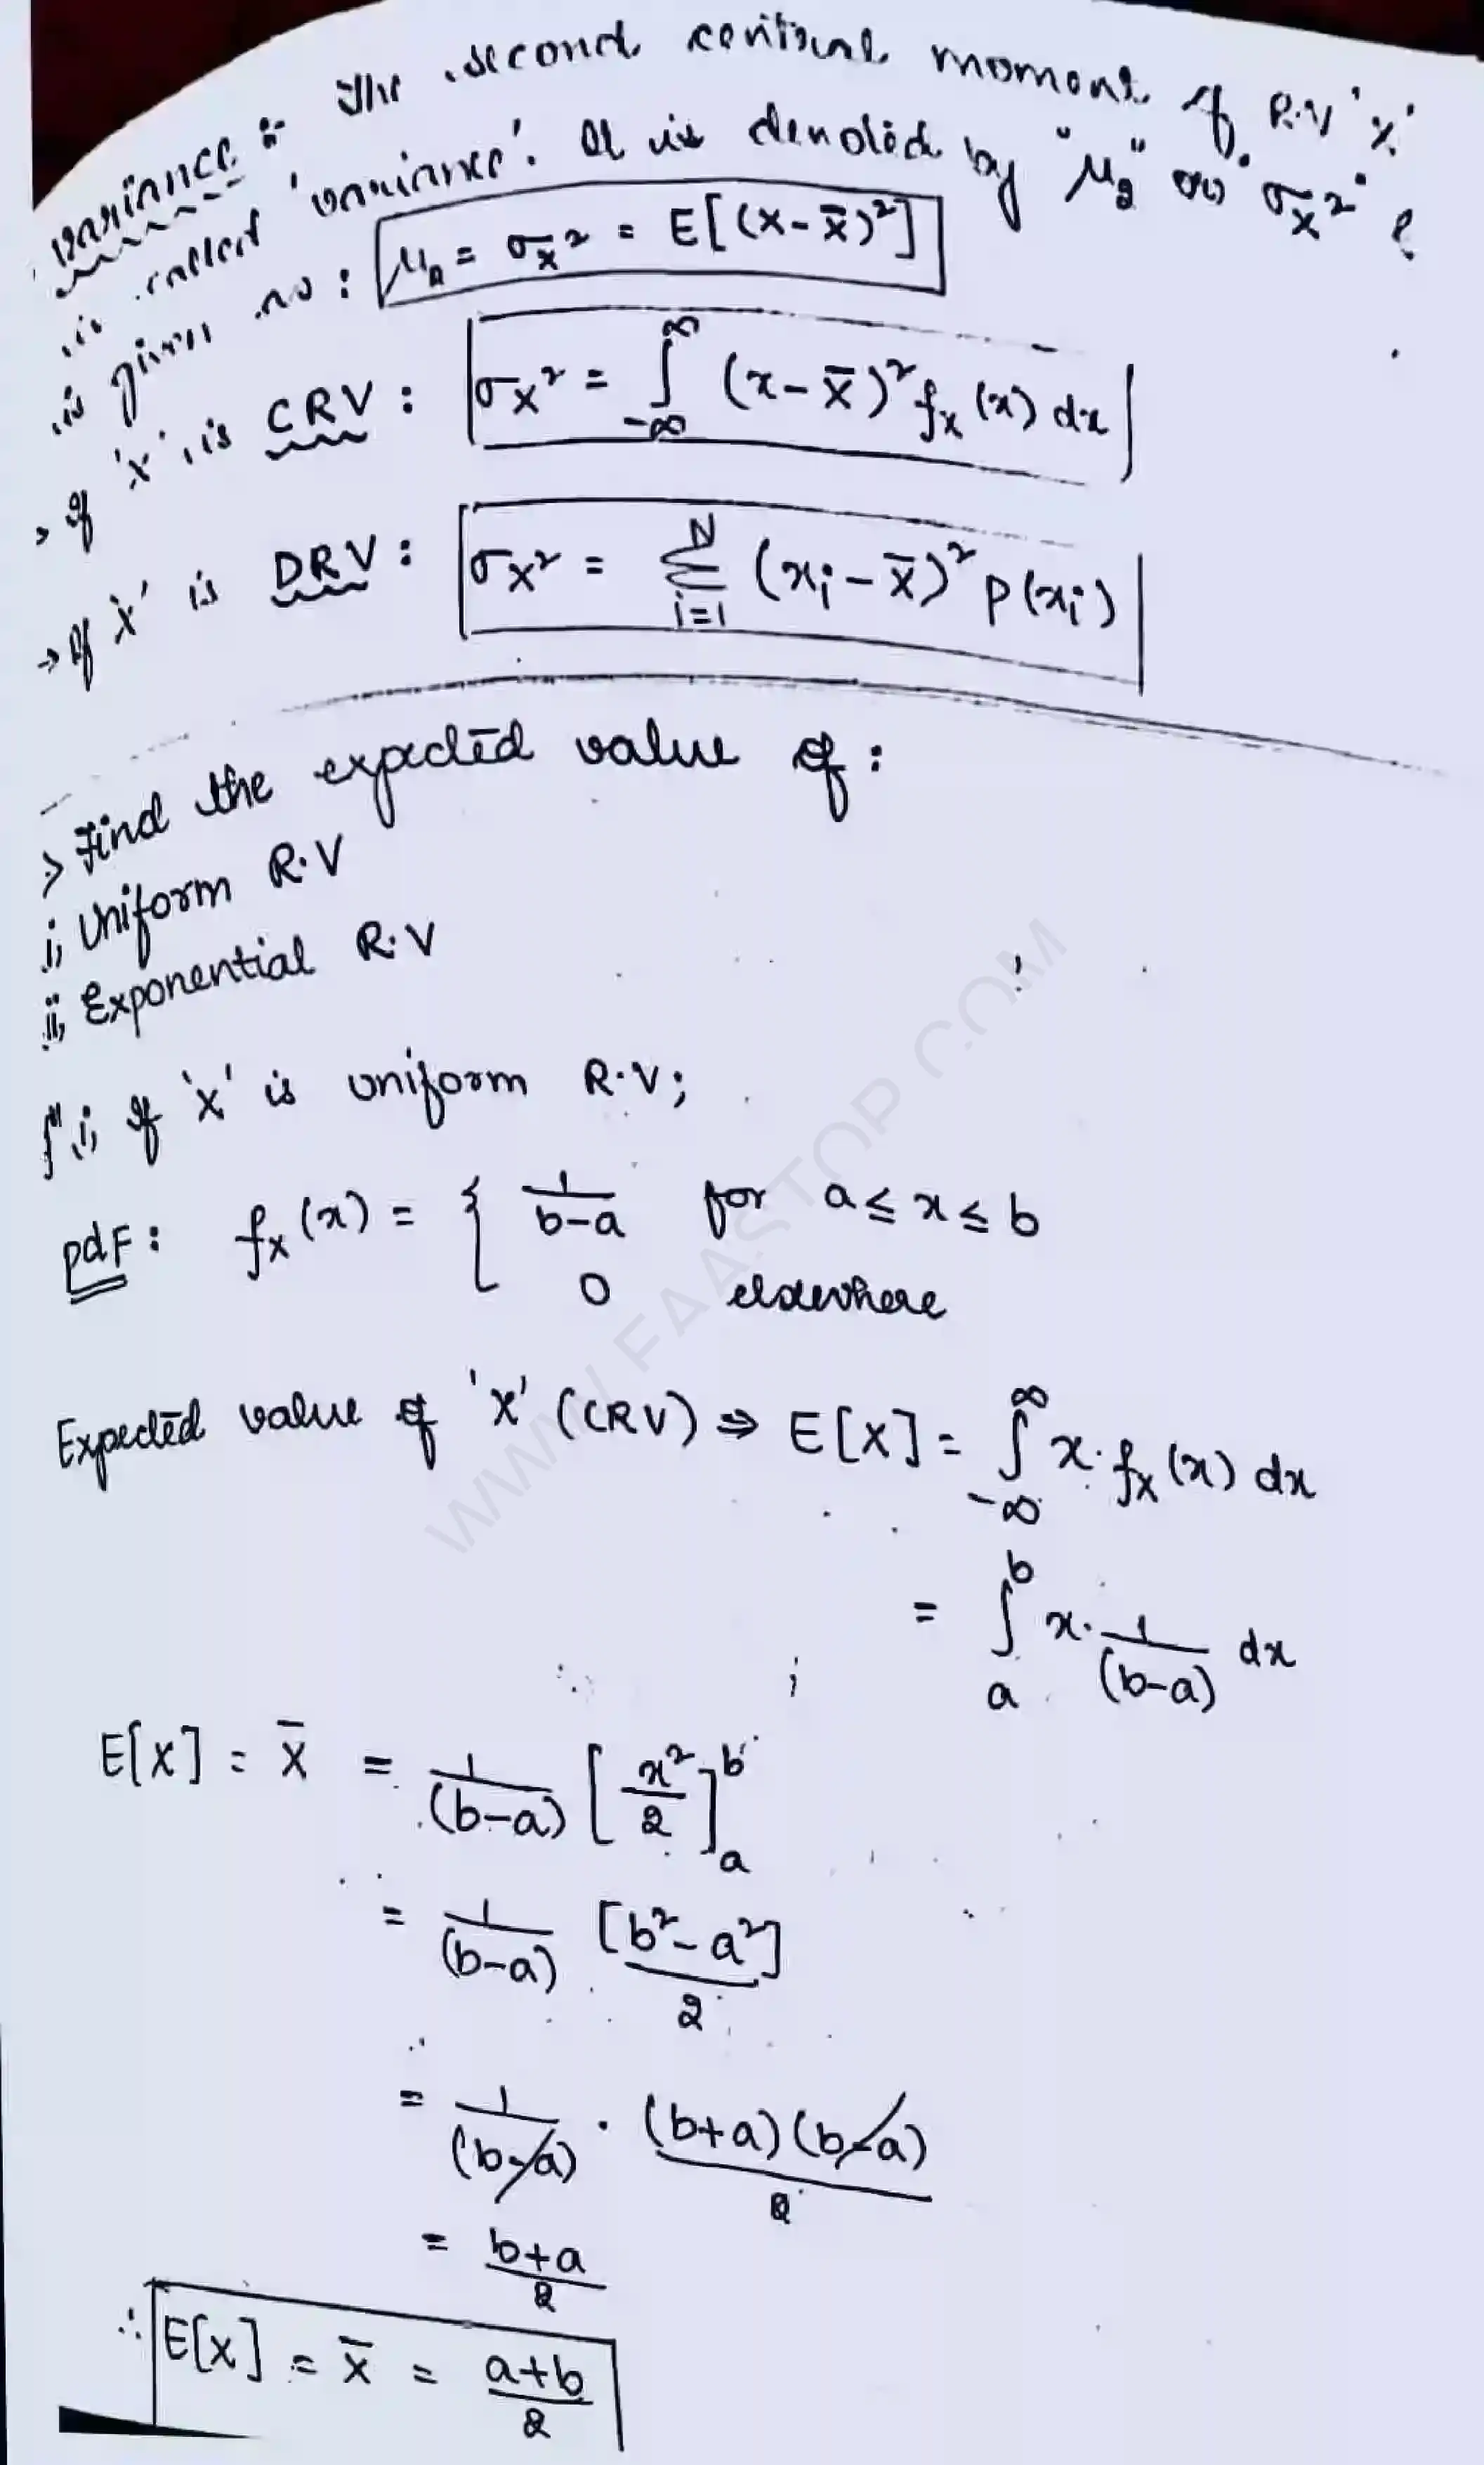 Variance :- The second central moment of R.V 'X'
is called 'variance'. It is denoted by "μ₂" or "σx²" &
is given as : μ₂ = σx² = E[(X-X̄)²]
→ If 'X' is CRV : σx² = ∫_{-∞}^{∞} (x-X̄)² fx(x) dx
→ If 'X' is DRV : σx² = Σ_{i=1}^{N} (xi-X̄)² P(xi)
> Find the expected value of :
i, Uniform R.V
ii, Exponential R.V
i, If 'X' is uniform R.V;
pdF : fx(x) = { 1/(b-a) for a ≤ x ≤ b
0 elsewhere
Expected value of 'X' (CRV) ⇒ E[X] = ∫_{-∞}^{∞} x. fx(x) dx
= ∫_{a}^{b} x. 1/(b-a) dx
E[X] = X̄ = 1/(b-a) [x²/2]_{a}^{b}
= 1/(b-a) [b²-a²]/2
= 1/(b-a) . (b+a)(b-a)/2
= b+a/2
∴ E[X] = X̄ = a+b/2
WWW.FAASTOP.COM